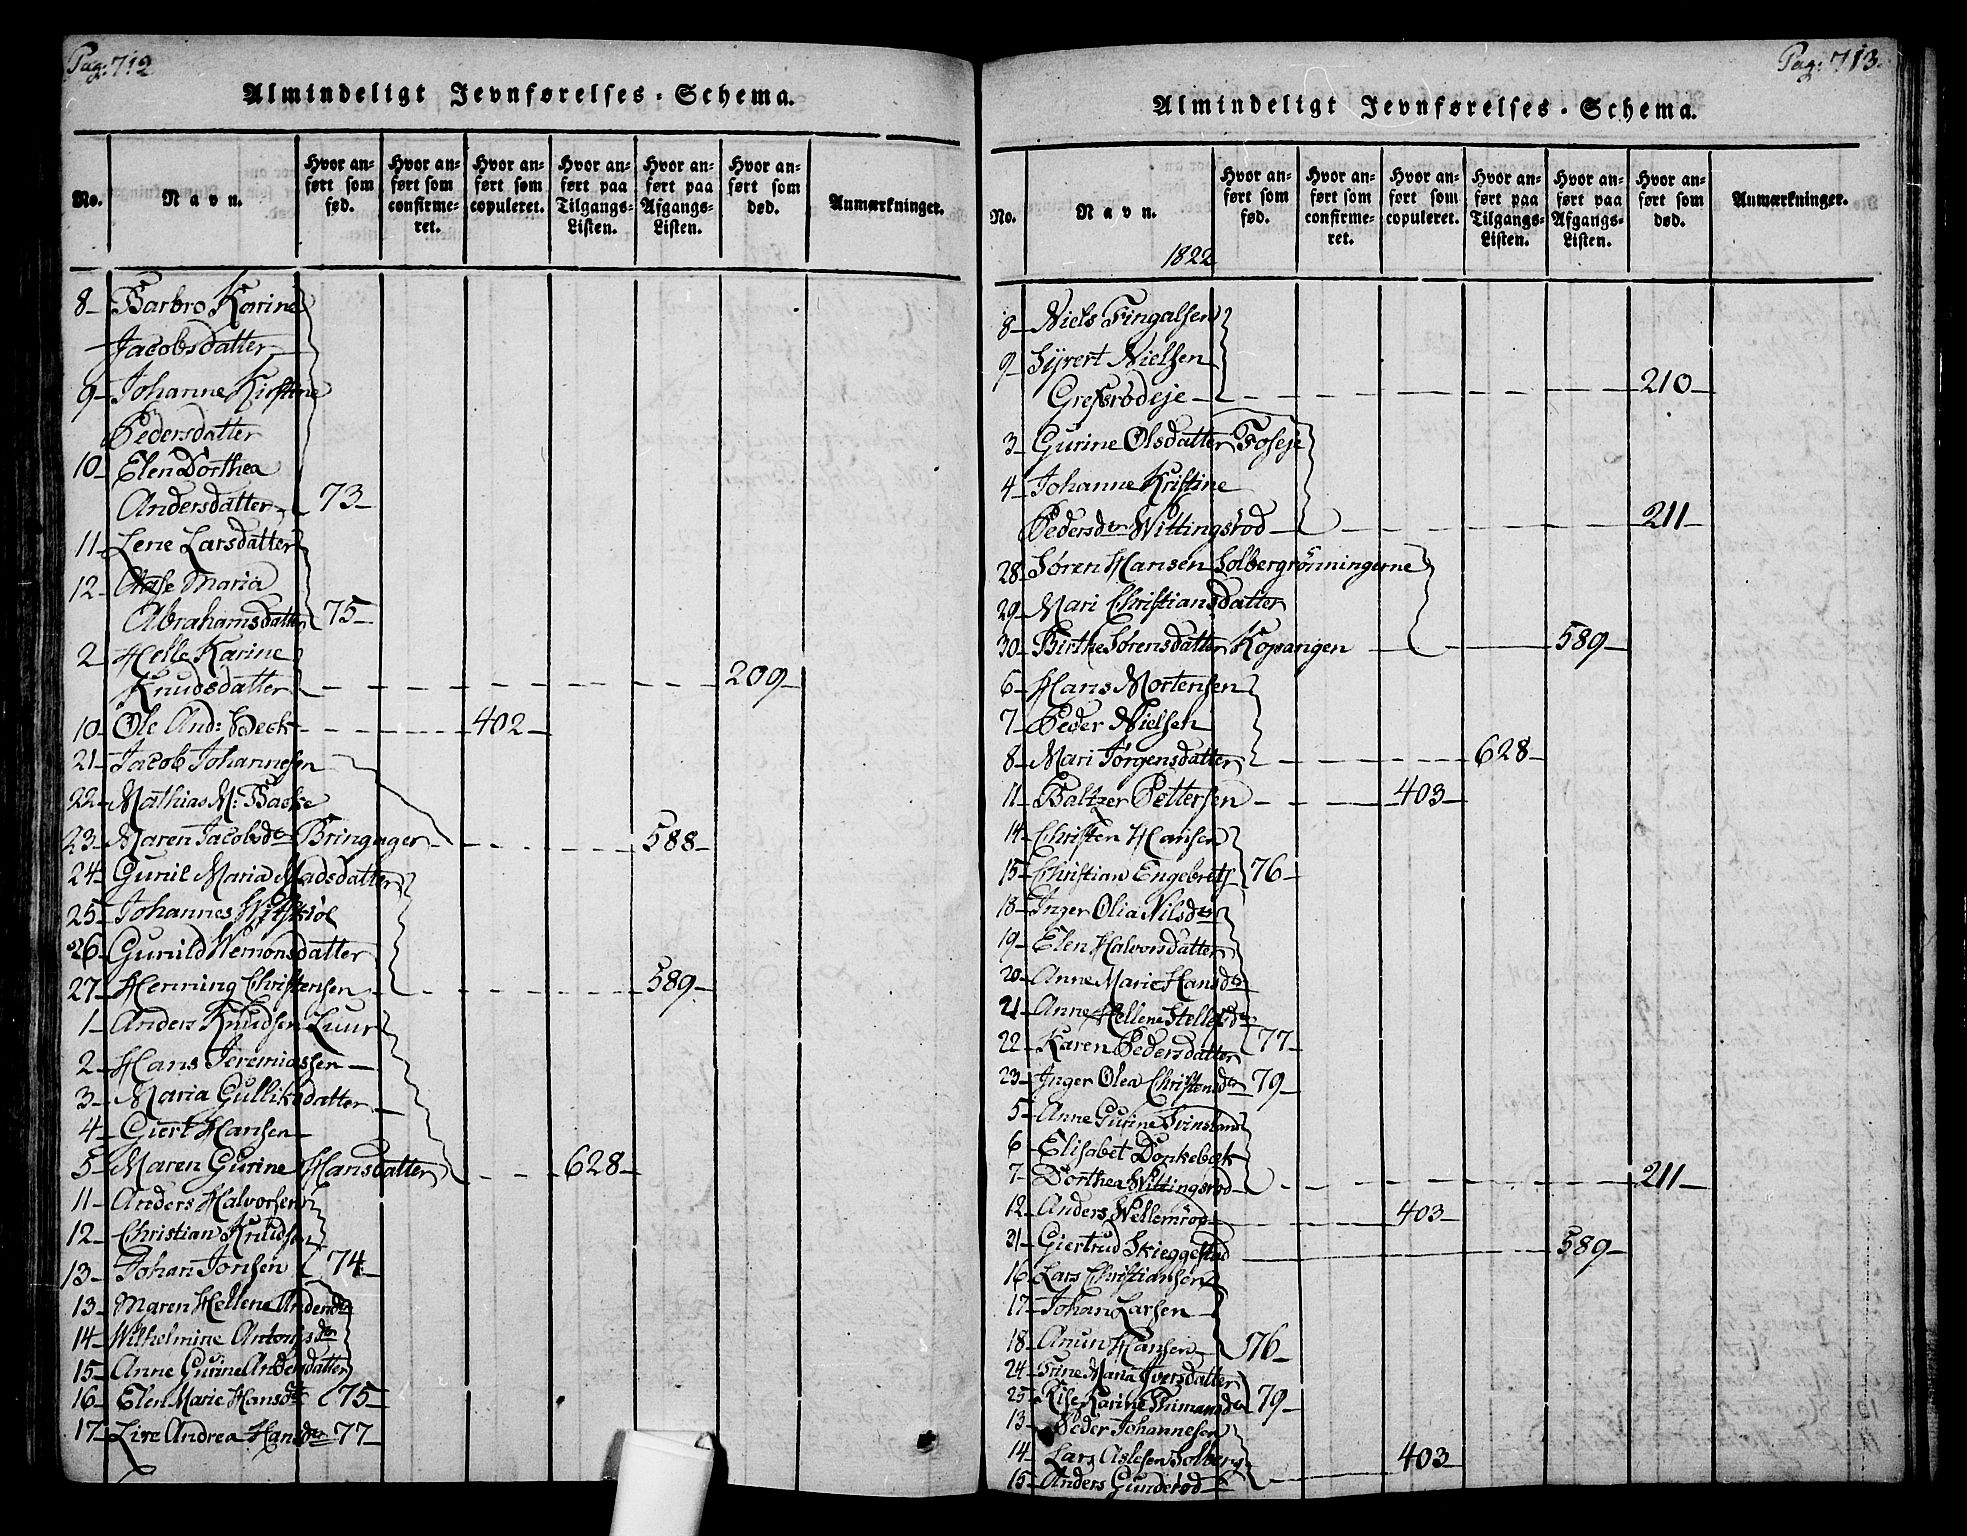 Pag: 712
Almindeligt Jevnførelses-Schema.
No. Navn. Hvor anført som fød. Hvor anført som confirmeret. Hvor anført som copuleret. Hvor anført paa Tilgangs-Listen. Hvor anført paa Afgangs-Listen. Hvor anført som død. Anmærkninger.
8 Barbro Karine
Jacobsdatter
9 Johanne Kirstine
Pedersdatter
10 Elen Dorthea
Andersdatter 73
11 Lene Larsdatter
12 Aase Maria
Abrahamsdatter 75
2 Helle Karine
Knudsdatter 209
10 Ole And: Beck 402
21 Jacob Johannesen
22 Mathias M: Backe
23 Maren Jacobsdr Bringager 588
24 Gunil Maria Madsdatter
25 Johannes
26 Gunild Wemonsdatter
27 Henning Christensen 589
1 Anders Knudsen Luur
2 Hans Jeremiassen
3 Maria Gulliksdatter
4 Giert Hansen
5 Maren Gurine Hansdatter 628
11 Anders Halvorsen
12 Christian Knudsen
13 Johan Jonsen 74
13 Maren Hellene Andersdr
14 Wilhelmine Antonsdr
15 Anne Gurine Andersdatter
16 Elen Marie Hansdr 75
17 Live Andrea Hansdr 77
Pag: 713
Almindeligt Jevnførelses-Schema.
No. Navn. Hvor anført som fød. Hvor anført som confirmeret. Hvor anført som copuleret. Hvor anført paa Tilgangs-Listen. Hvor anført paa Afgangs-Listen. Hvor anført som død. Anmærkninger.
1822
8 Niels Fingalsen
9 Syvert Nielsen
Gresrødeje 210
3 Gurine Olsdatter Foseje
4 Johanne Kristine
Pedersdr Wittingsrød 211
28 Søren Hansen Solbergrönningerne
29 Mari Christiansdatter
30 Birthe Sørensdatter Kopangen 589
6 Hans Mortensen
7 Peder Nielsen
8 Mari Jørgensdatter 628
11 Baltzer Pettersen 403
14 Christen Hansen
15 Christian Engebrets 76
18 Inger Olia Nilsdr
19 Elen Halvorsdatter
20 Anne Marie Hansdr
21 Anne Hellene
22 Karen Pedersdatter 77
23 Inger Olea Christensdr 79
5 Anne Gurine
6 Elisabet Donkebæk
7 Dorthea Wittingsrød 211
12 Anders Wellemrød 403
31 Giertrud Skieggestad 589
16 Lars Christiansen
17 Johan Larsen
18 Anun Hansen 76
24 Trine Maria Iversdatter
25 Else Karine 79
13 Peder Johannesen
14 Lars Aslesen Solberg 403
15 Anders Gunderød